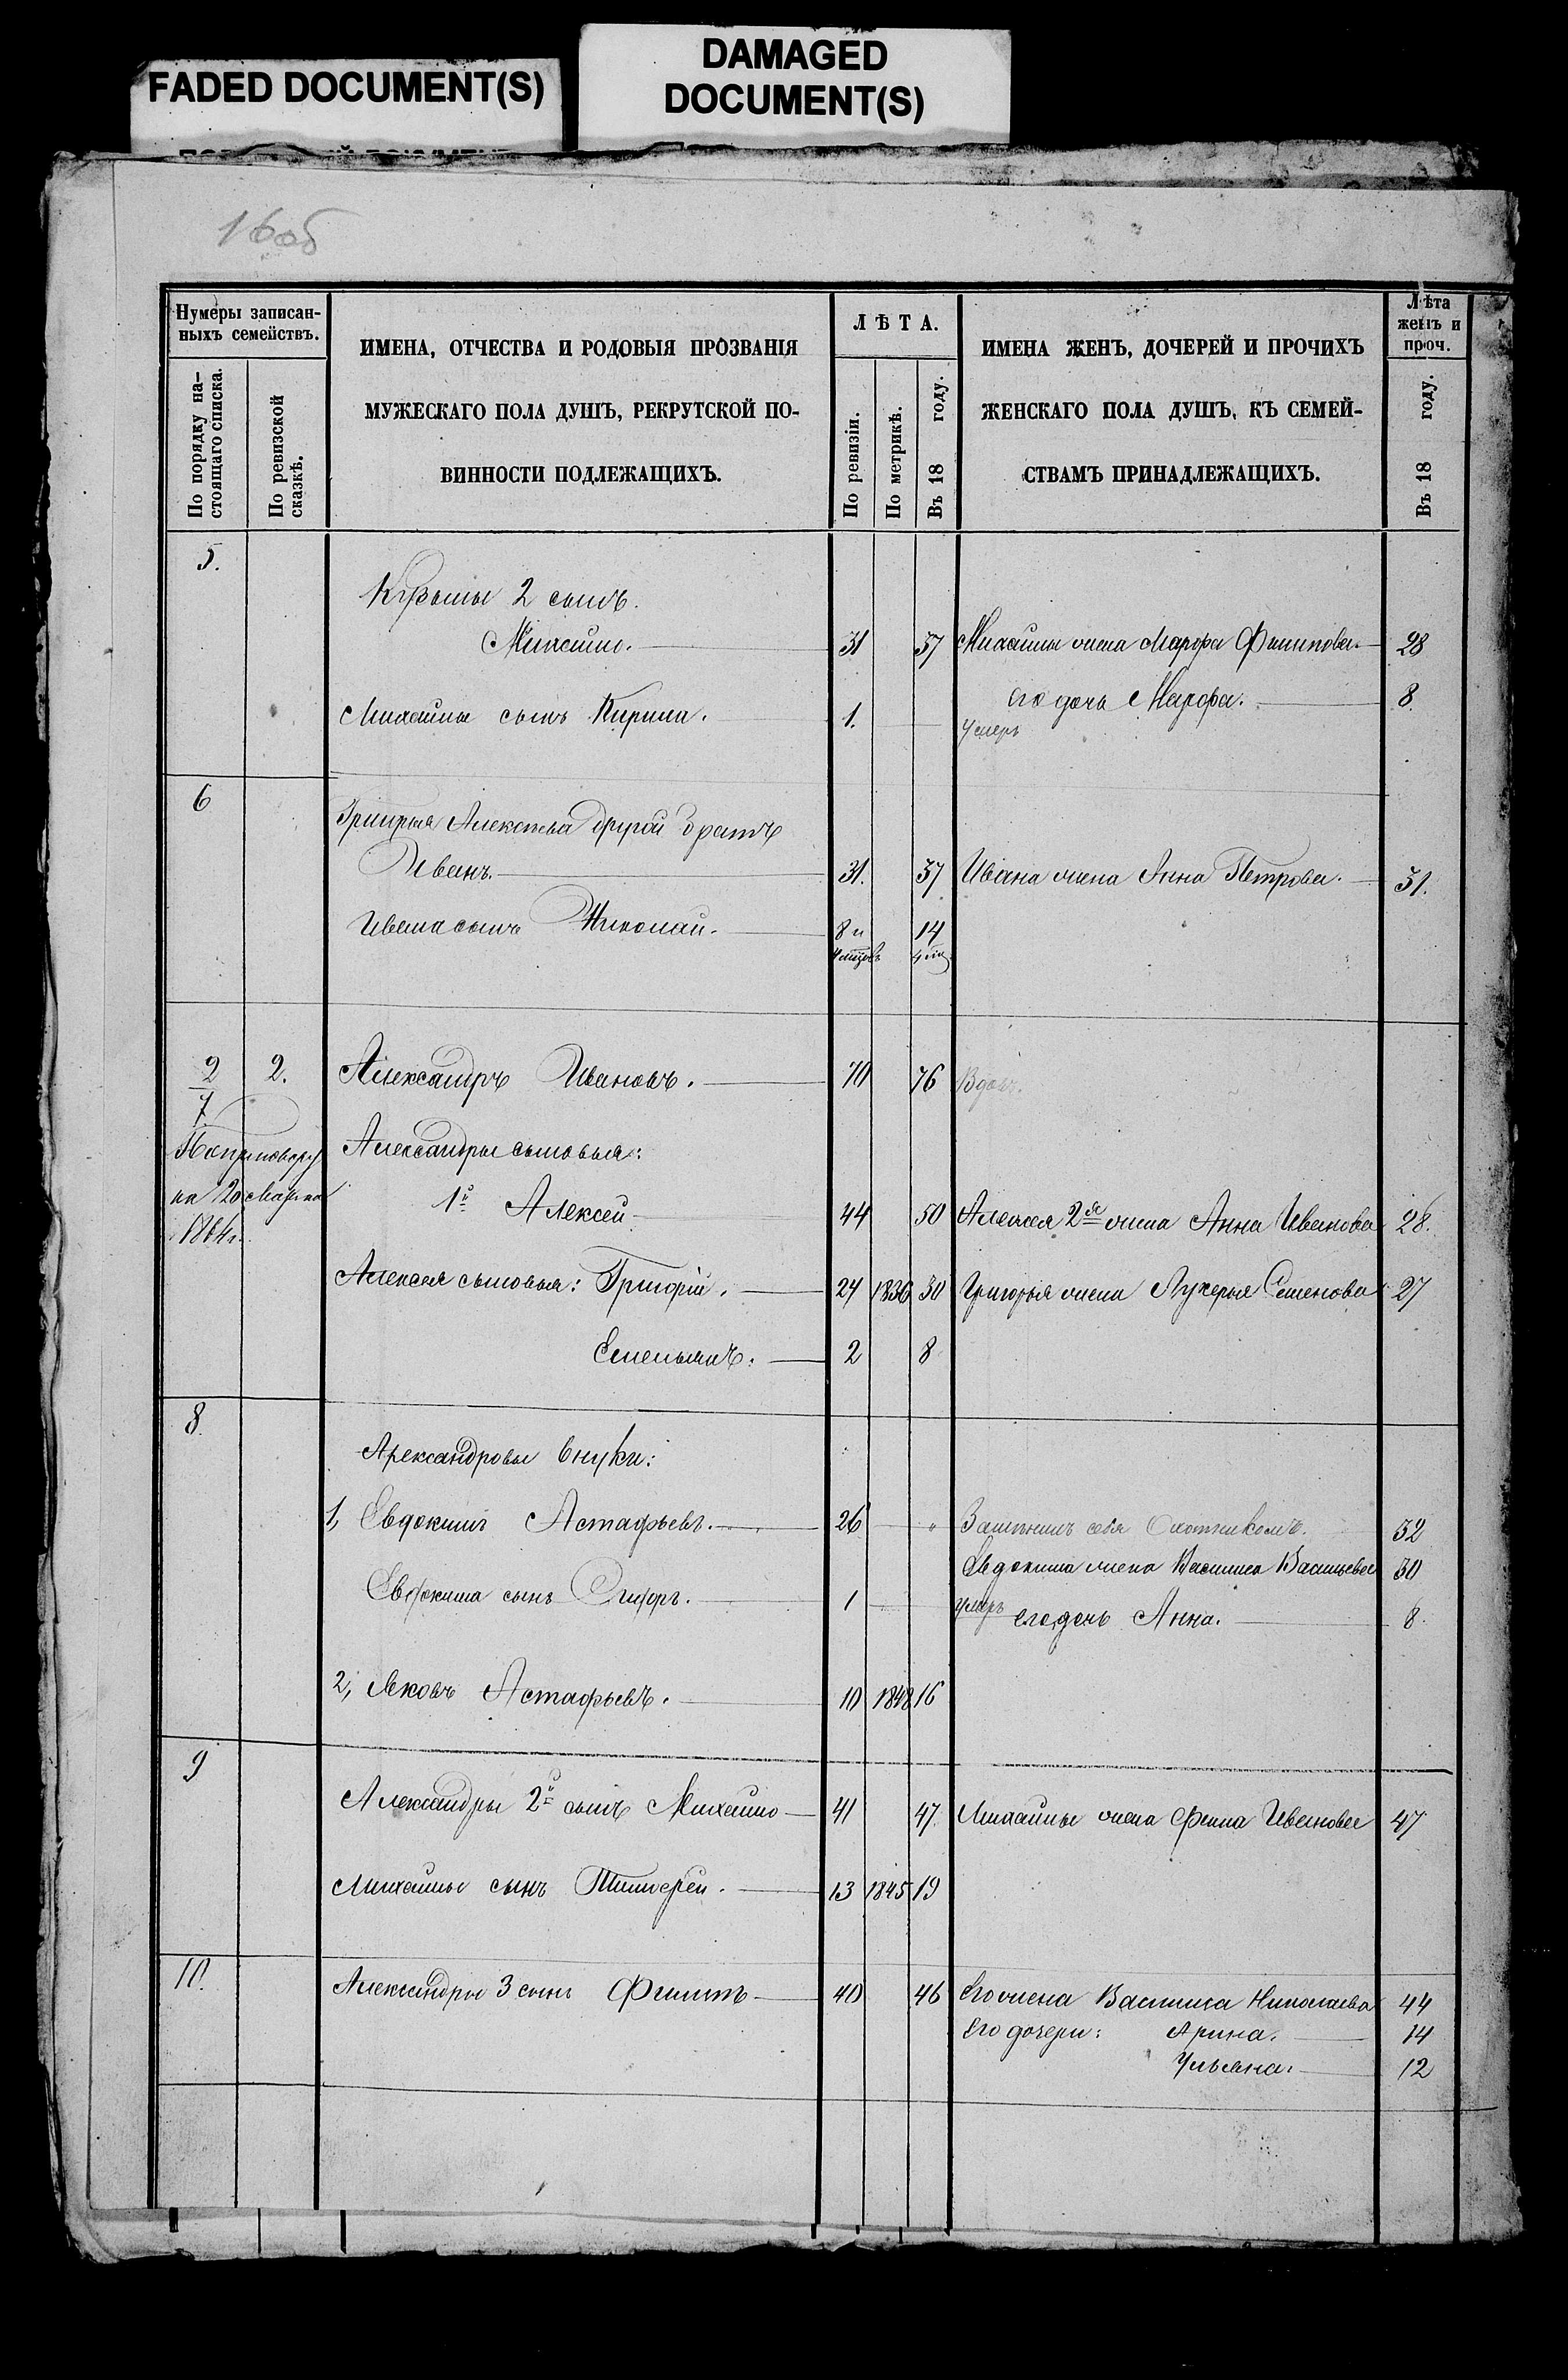 FADED DOCUMENT(S)
DAMAGED
DOCUMENT(S)
16 об
Нумеры записан-
ныхъ семействъ.
По порядку на-
стоящаго списка.
По ревизской
сказкѣ.
ИМЕНА, ОТЧЕСТВА И РОДОВЫЯ ПРОЗВАНІЯ
МУЖЕСКАГО ПОЛА ДУШЪ, РЕКРУТСКОЙ ПО-
ВИННОСТИ ПОДЛЕЖАЩИХЪ.
ЛѢТА.
По ревизіи.
По метрикѣ.
Въ 18 году.
ИМЕНА ЖЕНЪ, ДОЧЕРЕЙ И ПРОЧИХЪ
ЖЕНСКАГО ПОЛА ДУШЪ, КЪ СЕМЕЙ-
СТВАМЪ ПРИНАДЛЕЖАЩИХЪ.
Лѣта
женъ и
проч.
Въ 18 году.
5.
2 сынъ.
Михайло. 31 37 Михайлы жена Марфа Филипова. 28
его дочь Марфа. 8.
Михайлы сынъ Кирила. 1. умеръ
6
Григорья Алексѣева другой братъ
Иванъ. 31. 37 Ивана жена Анна Петрова. 31.
Ивана сынъ Николай. 8 и 14
2/7 2. Александръ Ивановъ. 70 76 Вдовъ.
По приговору
на 20 Марта
1864 г.
Александры сыновья:
1й Алексей 44 50 Алексея 2я жена Анна Иванова 28.
Алексея сыновья: Григорій. 24 1836 30 Григорья жена Лукерья Семенова 27
Емельянъ. 2 8
8.
Александровы внуки:
1, Евдокимъ Астафьевъ. 26 Замѣнилъ себя Охотникомъ. 32
Евдокима жена Василиса Васильева 30
Евдокима сынъ 1 умеръ
его дочь Анна. 8.
2, Яковъ Астафьевъ. 10 1848 16
9
Александры 2й сынъ Михайло 41 47. Михайлы жена Фекла Иванова 47
Михайлы сынъ Тимофей. 13 1845 19
10.
Александры 3 сынъ Филипъ 40 46 Его жена Василиса Николаева 44
Его дочери: Арина. 14
Ульяна. 12